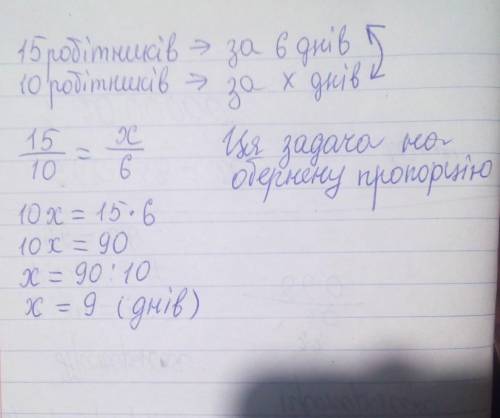 15 робітників → за 6 днів
10 робітників → за x днів
15/10 = x/6
Ця задача на обернену пропорцію
10x = 15 · 6
10x = 90
x = 90 : 10
x = 9 (днів)